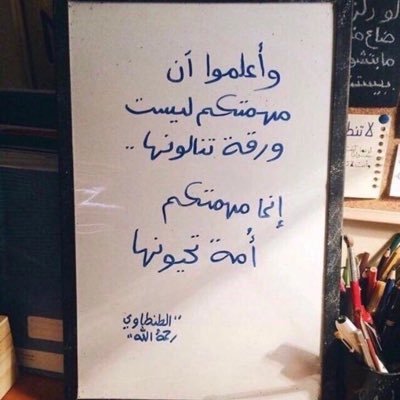 وأعلموا آن
مهمتكم ليست
ورقة تنالونها ..
إنما مهمتكم
أمة تحيونها
"الطنطاوي
رحمة الله"
لو
ضاع
لا تنط